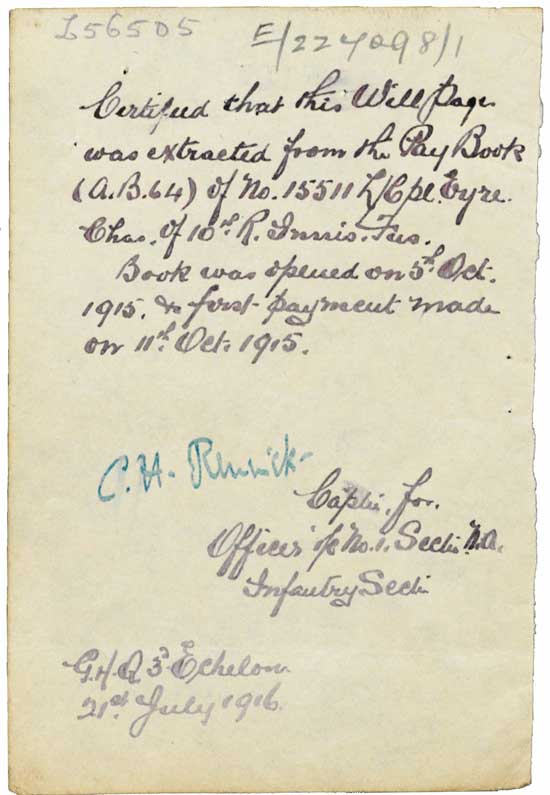 I56505
E/224098/1
Certified that this Will Page
was extracted from the Pay Book
(A.B.64) of No. 15511 L/Cpl. Eyre.
Chas. of 10th R. Innis. Fus.
Book was opened on 5th Oct.
1915. & first payment made
on 11th Oct. 1915.
C. H.
Captn. for.
Officer i/c No. 1. Sectn.
Infantry Sectn
G.H.Q. 3d Echelon.
21st July 1916.